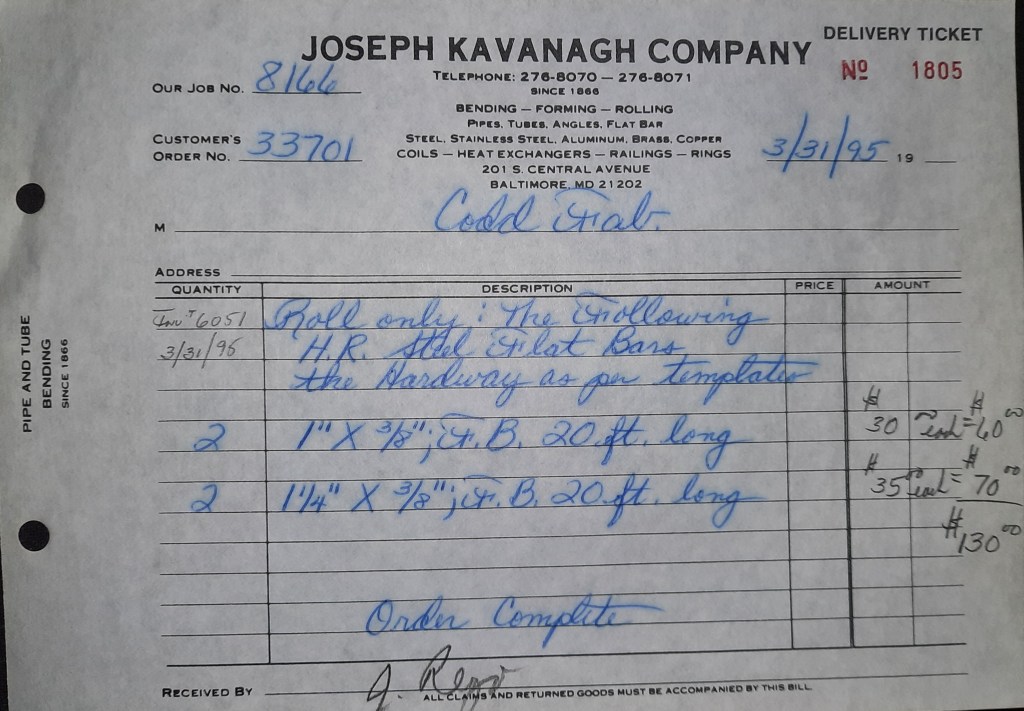 DELIVERY TICKET
JOSEPH KAVANAGH COMPANY
Nº 1805
TELEPHONE: 276-8070 — 276-8071
SINCE 1866
OUR JOB NO. 8166
BENDING — FORMING — ROLLING
PIPES, TUBES, ANGLES, FLAT BAR
STEEL, STAINLESS STEEL, ALUMINUM, BRASS, COPPER
CUSTOMER'S
ORDER NO. 33701
COILS — HEAT EXCHANGERS — RAILINGS — RINGS
3/31/95 19
201 S. CENTRAL AVENUE
BALTIMORE, MD 21202
M Codd Fab.
ADDRESS
QUANTITY DESCRIPTION PRICE AMOUNT
Inv # 6051 Roll only: The Following
3/31/95 H.R. Steel Flat Bars
the Hardway as per templates
2 1" X 3/8"; F.B. 20 ft. long $30 each = $60.00
2 1 1/4" X 3/8"; F.B. 20 ft. long $35 each = $70.00
$130.00
Order Complete
RECEIVED BY J.
ALL CLAIMS AND RETURNED GOODS MUST BE ACCOMPANIED BY THIS BILL
PIPE AND TUBE
BENDING
SINCE 1866